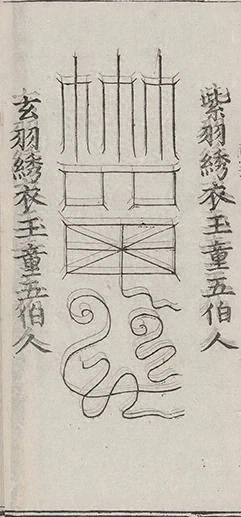 紫羽綉衣玉童五伯人
玄羽綉衣玉童五伯人